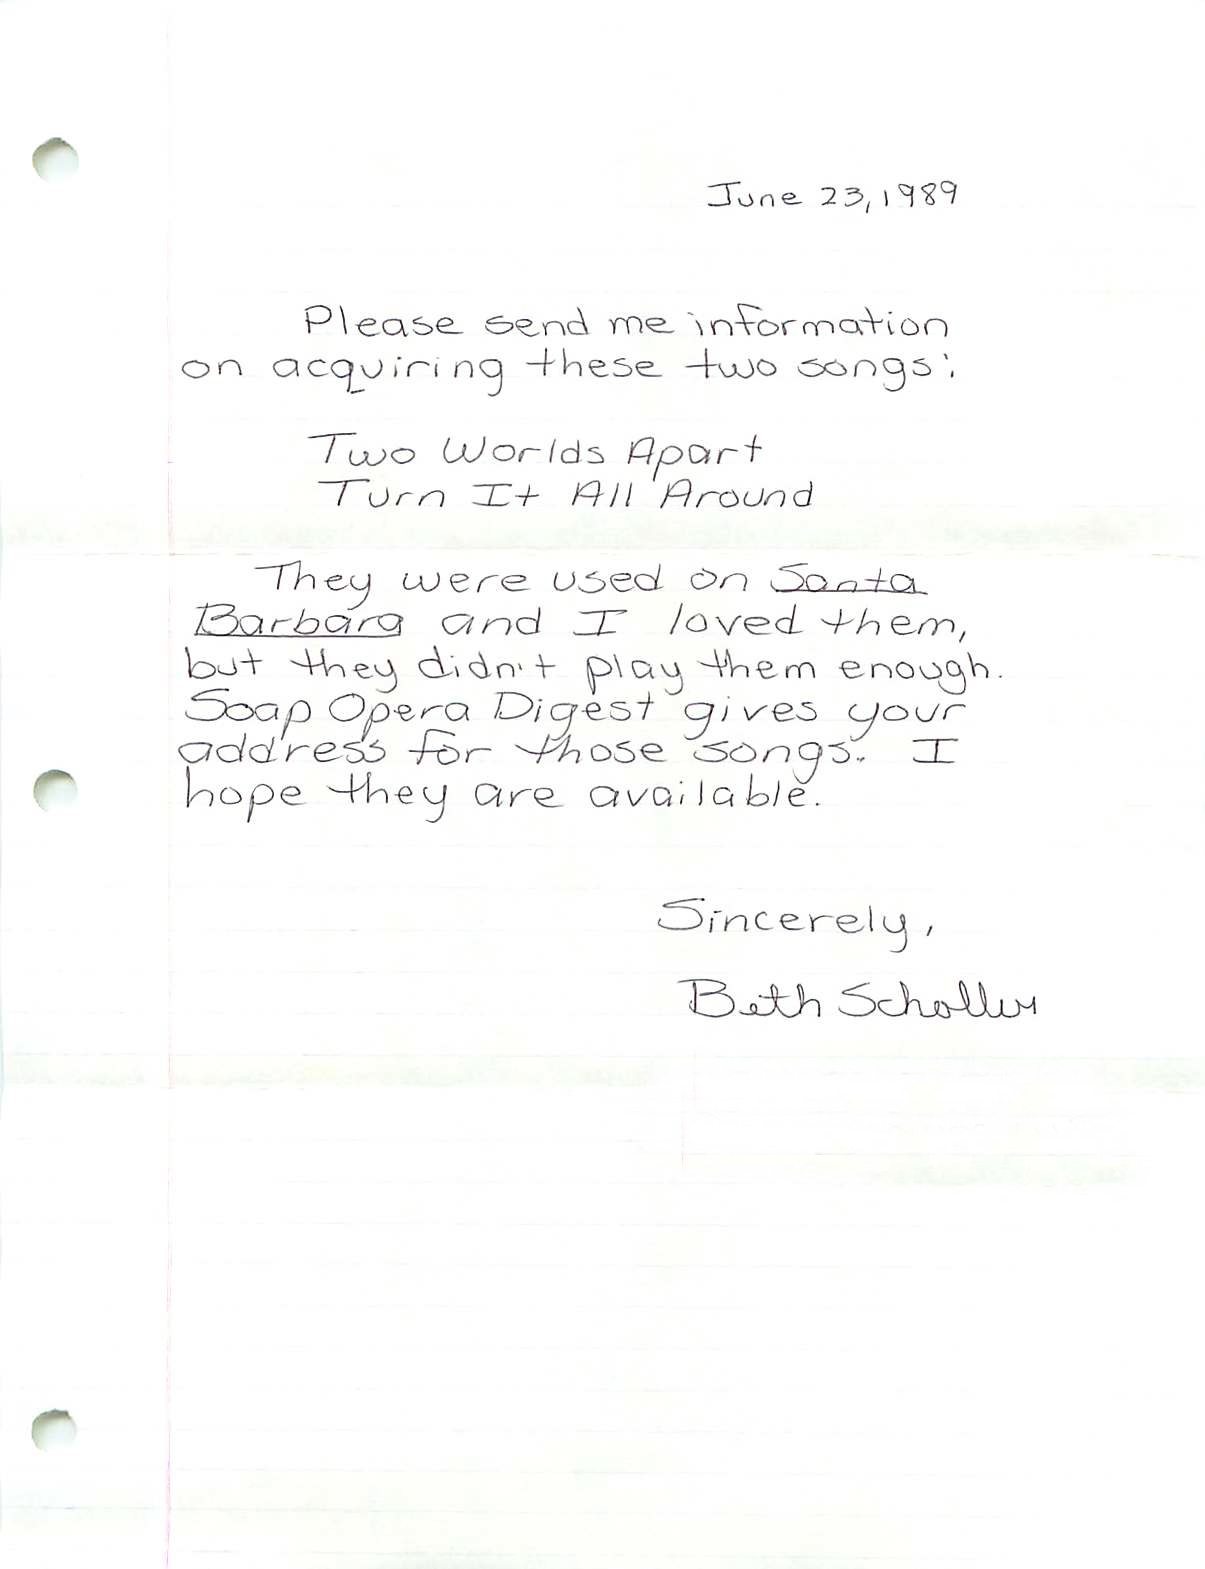 June 23, 1989
Please send me information
on acquiring these two songs:
Two Worlds Apart
Turn It All Around
They were used on Santa
Barbara and I loved them,
but they didn't play them enough.
Soap Opera Digest gives your
address for those songs. I
hope they are available.
Sincerely,
Beth